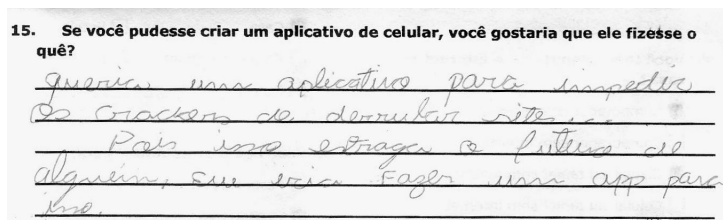 15. Se você pudesse criar um aplicativo de celular, você gostaria que ele fizesse o
quê?
queria um aplicativo para impedir
os crackers de derrubar sites...
Pois isso estraga o futuro de
alguém, eu iria fazer um app para
isso.